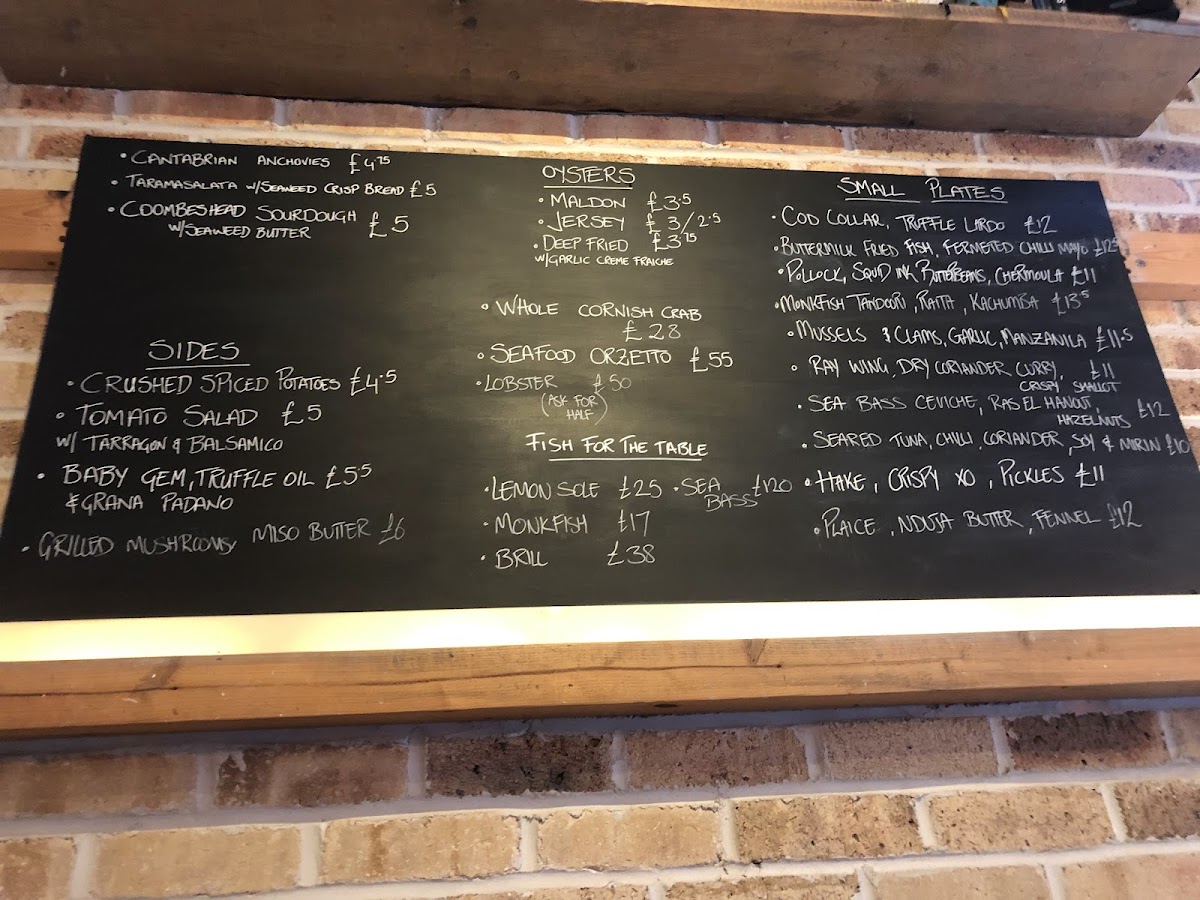 • CANTABRIAN ANCHOVIES £4.75
• TARAMASALATA W/SEAWEED CRISP BREAD £5
• COOMBESHEAD SOURDOUGH £5
W/SEAWEED BUTTER
SIDES
• CRUSHED SPICED POTATOES £4.5
• TOMATO SALAD £5
W/ TARRAGON & BALSAMICO
• BABY GEM, TRUFFLE OIL £5.5
& GRANA PADANO
• GRILLED MUSHROOMS, MISO BUTTER £6
OYSTERS
• MALDON £3.5
• JERSEY £3/2.5
• DEEP FRIED £3.75
W/GARLIC CREME FRAICHE
• WHOLE CORNISH CRAB
£28
• SEAFOOD ORZETTO £55
• LOBSTER £50
(ASK FOR
HALF)
FISH FOR THE TABLE
• LEMON SOLE £25 • SEA BASS £120
• MONKFISH £17
• BRILL £38
SMALL PLATES
• COD COLLAR, TRUFFLE LARDO £12
• BUTTERMILK FRIED FISH, FERMETED CHILLI MAYO £12.5
• POLLOCK, SQUID INK BUTTERBEANS, CHERMOULA £11
• MONKFISH TANDOORI, RAITA, KACHUMBA £13.5
• MUSSELS & CLAMS, GARLIC, MANZANILA £11.5
• RAY WING, DRY CORIANDER CURRY, £11
CRISPY SHALLOT
• SEA BASS CEVICHE, RAS EL HANOUT, £12
HAZELNUTS
• SEARED TUNA, CHILLI, CORIANDER, SOY & MIRIN £10
• HAKE, CRISPY XO, PICKLES £11
• PLAICE, NDUJA BUTTER, FENNEL £12